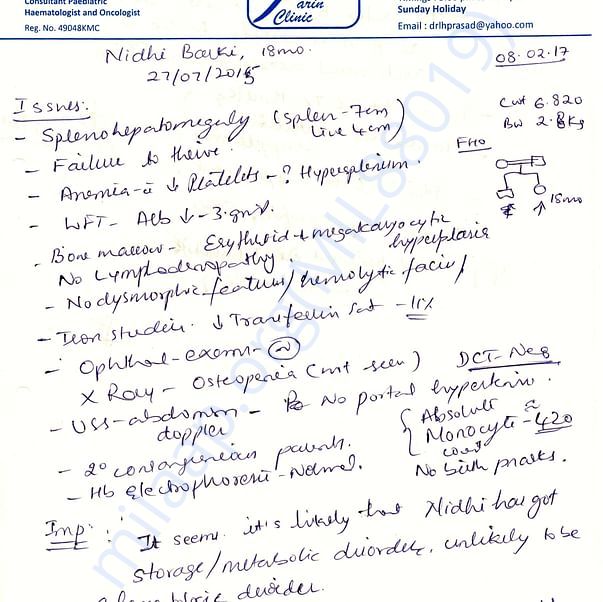 Consultant Paediatric
Haematologist and Oncologist
Reg. No. 49048KMC
arin
Clinic
Sunday Holiday
Email : drlhprasad@yahoo.com
Nidhi Barki, 18mo.
27/07/2015
08.02.17
Issues:
Cwt 6.820
BW 2.8kg
- Splenohepatomegaly (Spleen - 7cm
Live 4cm)
FHO
- Failure to thrive.
- Anemia - c̄ ↓ Platelets - ? Hypersplenism.
18mo
- LFT - Alb ↓ - 3.gm/.
- Bone marrow - Erythroid + megakaryocytic
hyperplasia
No Lymphadenopathy
- No dysmorphic features / hemolytic facies /
- Iron studies. ↓ Transferrin Sat - 11%
- Ophthal - exam - N
X Ray - Osteopenia (not seen)
DCT - Neg
- USS - abdomen - No portal hypertension.
doppler
Absolute
Monocyte - 420
count
- 2° consanguineous parents.
- Hb Electrophoresis - Normal.
No birth marks.
Imp: It seems it's likely that Nidhi has got
storage/metabolic disorder, unlikely to be
disorder.
milaap.org/MIL880197